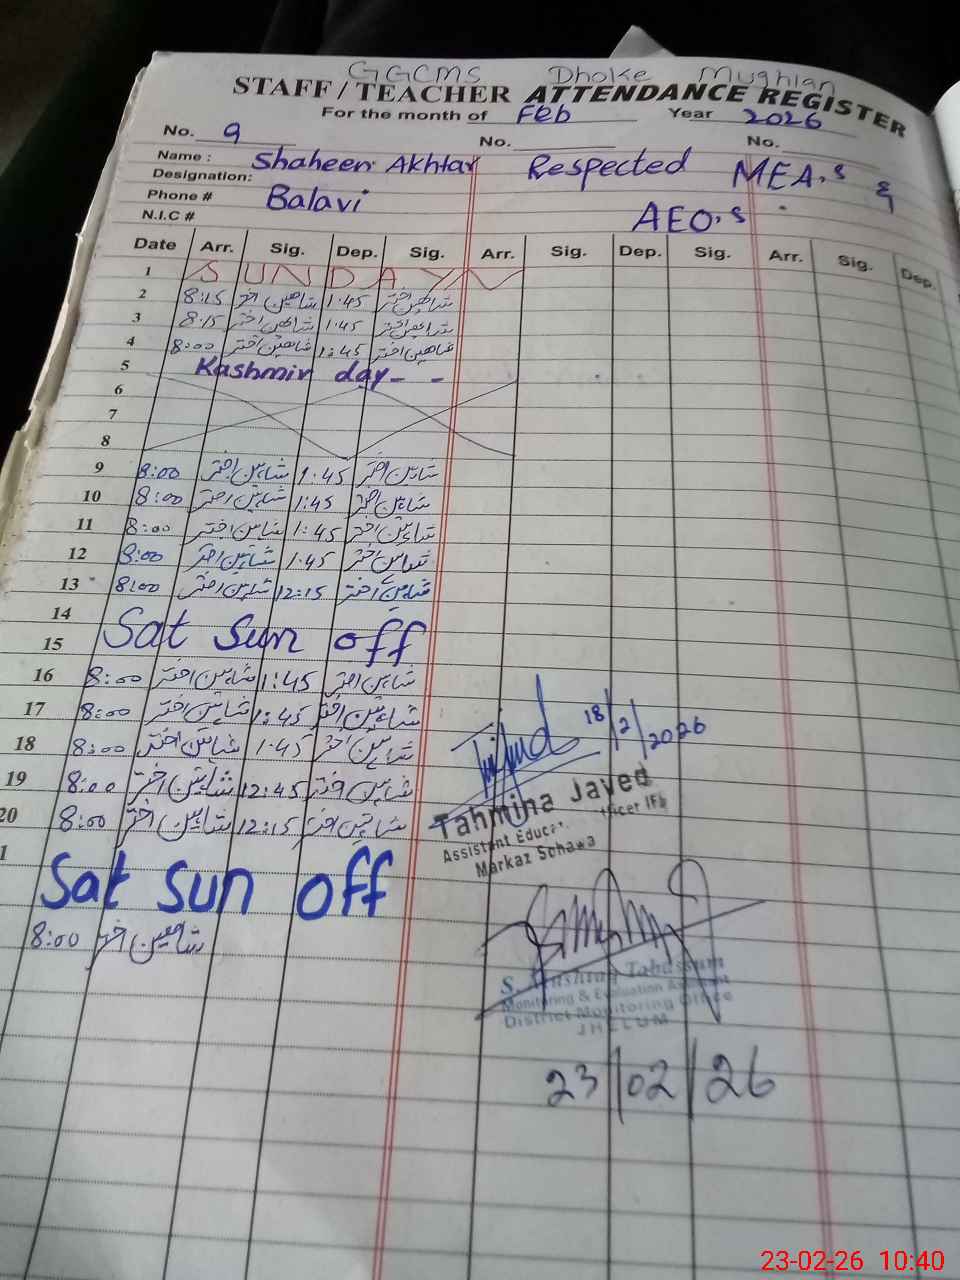 GGCMS Dhoke Mughlan
STAFF / TEACHER ATTENDANCE REGISTER
For the month of Feb Year 2026
No. 9 No. No.
Name : Shaheen Akhtar Respected MEA,s &
Designation:
Phone # Balavi AEO,s
N.I.C #
Date Arr. Sig. Dep. Sig. Arr. Sig. Dep. Sig. Arr. Sig. Dep.
1 SUNDAY
2 8:15 شاہین اختر 1.45 شاہین اختر
3 8.15 شاہین اختر 1.45 شاہین اختر
4 8:00 شاہین اختر 1:45 شاہین اختر
5 Kashmir day - -
6
7
8
9 8:00 شاہین اختر 1.45 شاہین اختر
10 8:00 شاہین اختر 1:45 شاہین اختر
11 8:00 شاہین اختر 1:45 شاہین اختر
12 8:00 شاہین اختر 1.45 شاہین اختر
13 8:00 شاہین اختر 12:15 شاہین اختر
14
15 Sat Sun off
16 8:00 شاہین اختر 1:45 شاہین اختر
17 8:00 شاہین اختر 1:45 شاہین اختر
18 8:00 شاہین اختر 1.45 شاہین اختر
19 8:00 شاہین اختر 12:45 شاہین اختر
20 8:00 شاہین اختر 12:15 شاہین اختر
1
Sat Sun off
8:00 شاہین اختر
18/2/2026
Tahmina Javed
Assistant Educat ficer IFs
Markaz Sohawa
S. Tabassum
Monitoring & Evaluation Assistant
District Monitoring Office
JHELUM
23/02/26
23-02-26 10:40